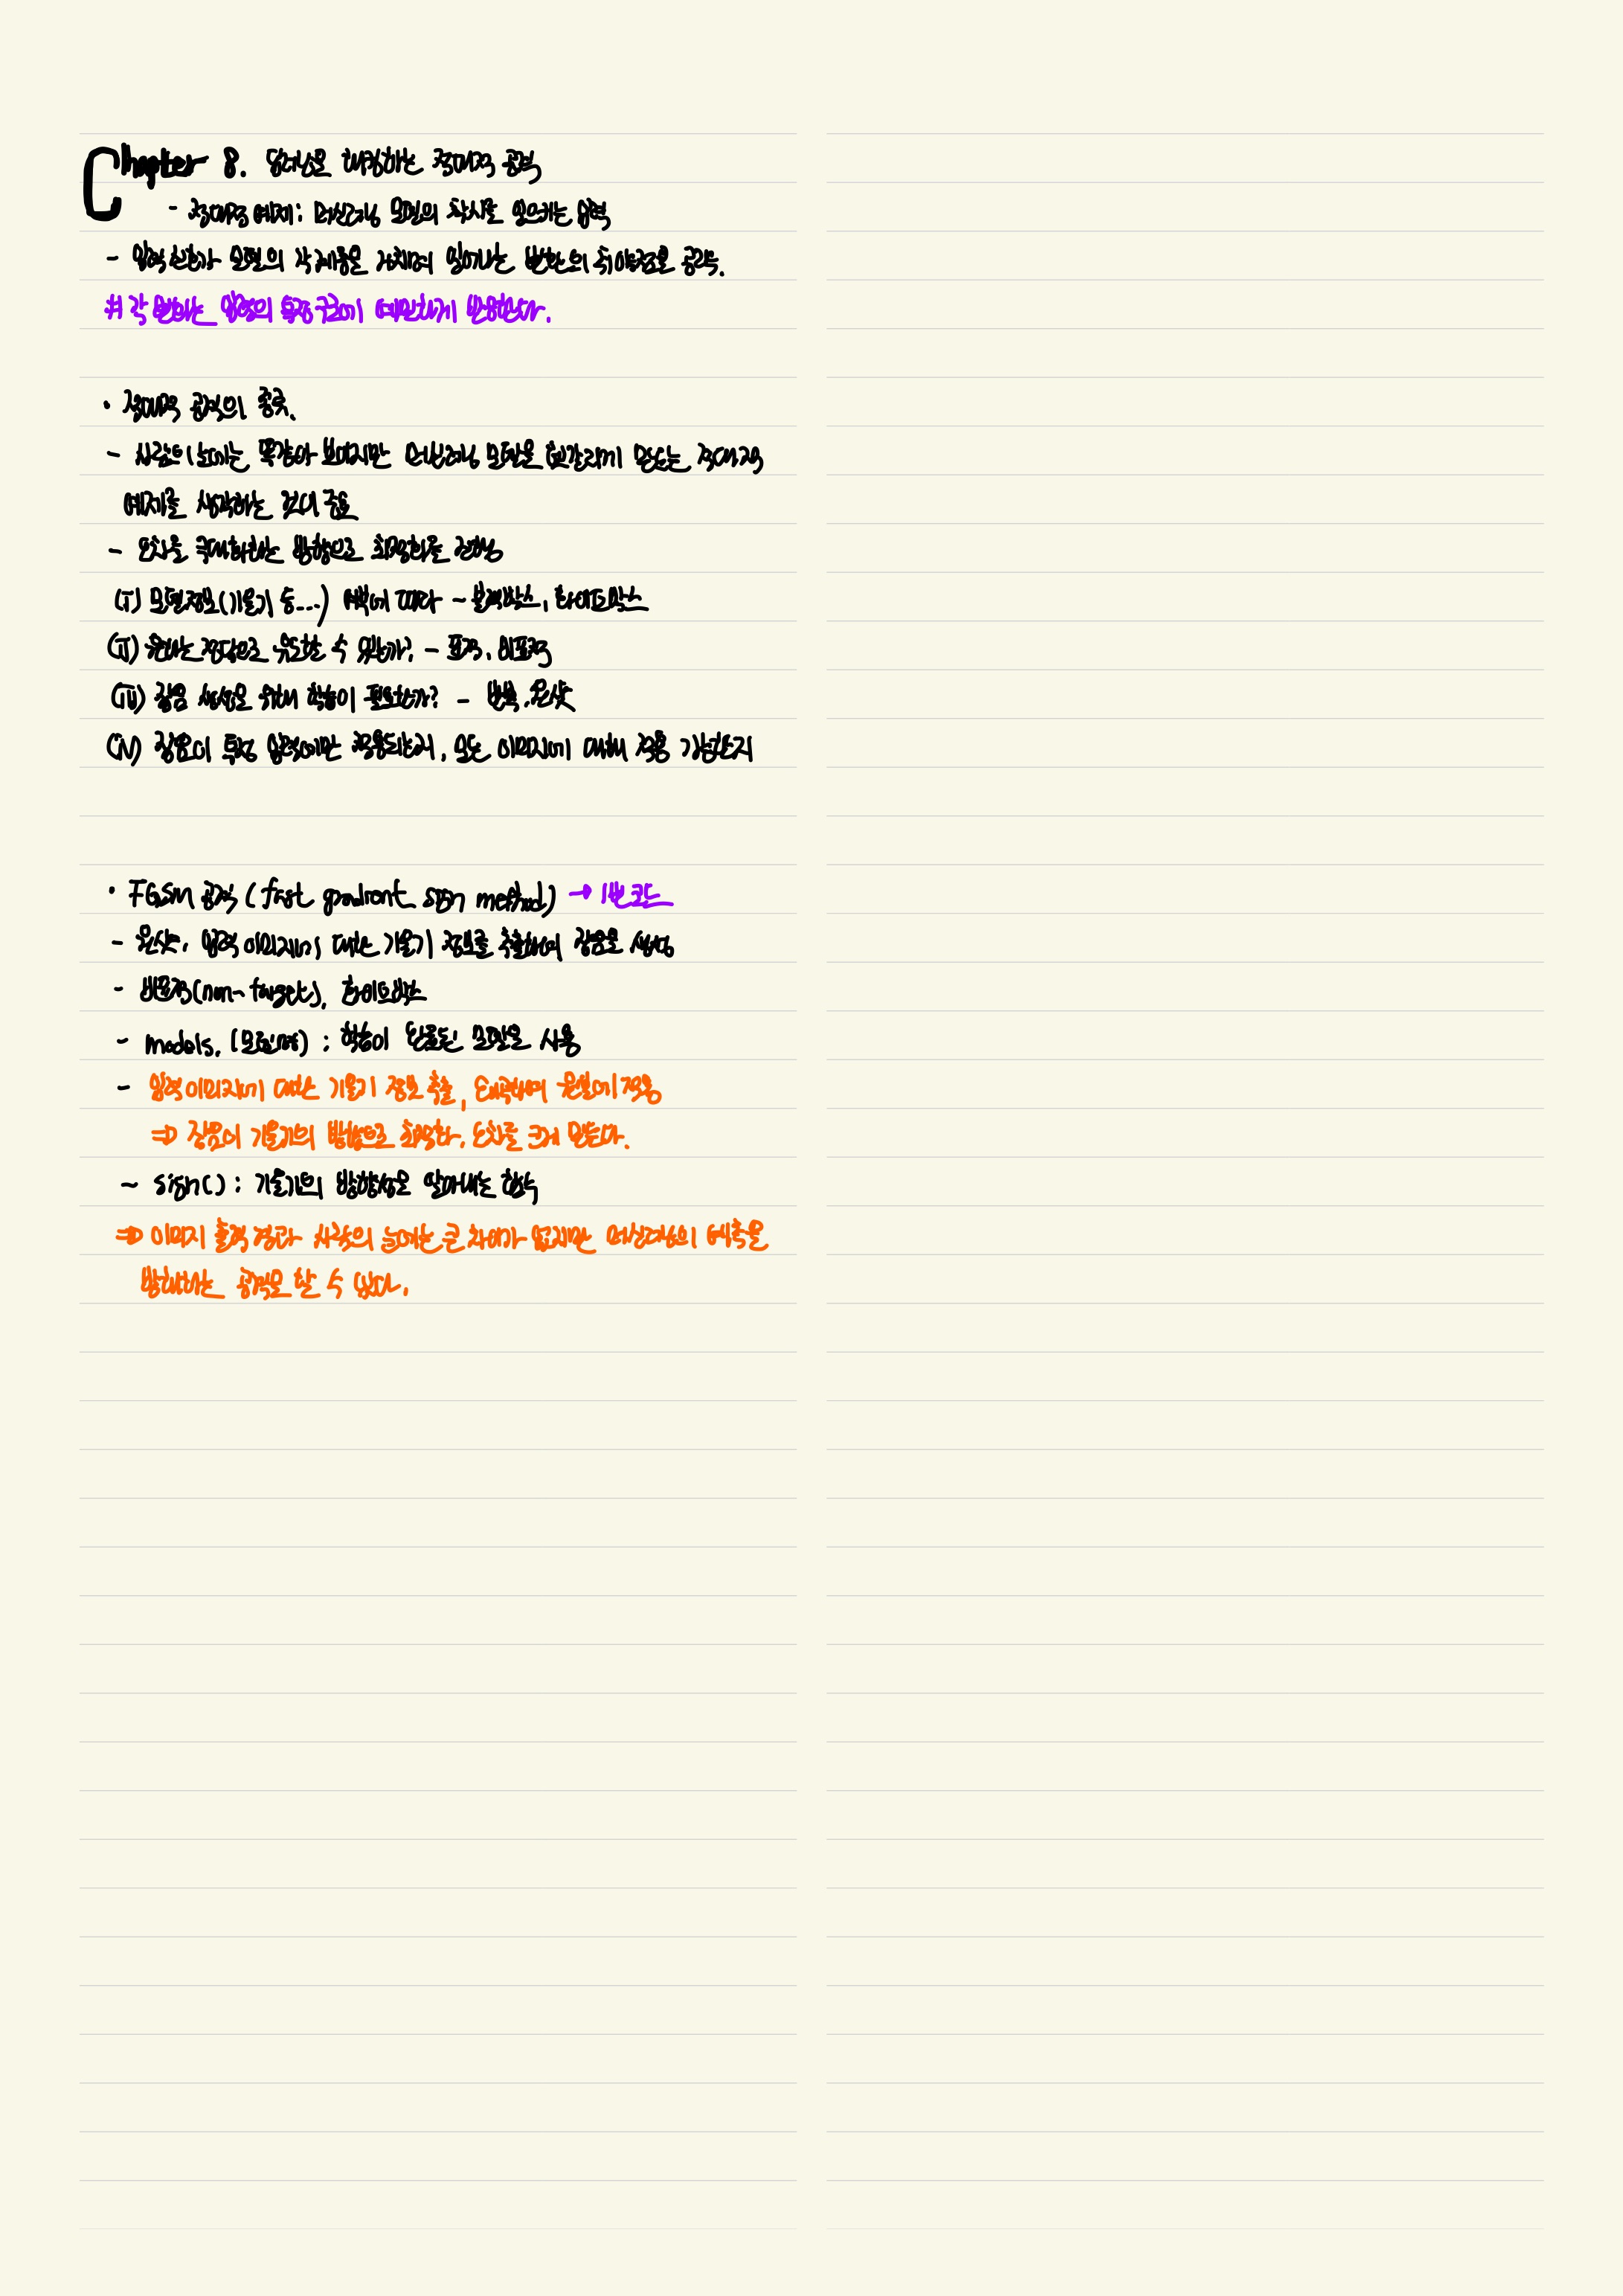 Chapter 8. 딥러닝을 해킹하는 적대적 공격
- 적대적 예제: 머신러닝 모델의 착시를 일으키는 입력
- 입력 값이 모델의 각 계층을 거치며 일어나는 변환의 취약점을 공략.
# 각 변화는 입력의 특정 구간에 예민하게 반응한다.
· 적대적 공격의 종류.
- 사람의 눈에는 똑같아 보이지만 머신러닝 모델을 헷갈리게 만드는 적대적
예제를 생성하는 것이 중요
- 오차를 극대화하는 방향으로 최적화를 진행
(i) 모델정보(기울기 등...) 여부에 따라 ~ 블랙박스, 화이트박스
(ii) 원하는 정답으로 유도할 수 있는가? - 표적, 비표적
(iii) 잡음 생성을 위해 학습이 필요한가? - 반복, 원샷
(iv) 잡음이 특정 입력에만 적용되는지, 모든 이미지에 대해 적용 가능한지
· FGSM 공격 (fast gradient sign method) → 1번 코드
- 원샷. 입력 이미지에 대한 기울기 정보를 추출하여 잡음을 생성
- 반표적(non-target), 화이트박스
- models.(모델명) : 학습이 완료된 모델을 사용
- 입력 이미지에 대한 기울기 정보 추출, 왜곡하여 원본에 적용
⇒ 잡음이 기울기의 방향으로 최적화. 오차를 크게 만든다.
~ sign() : 기울기의 방향성을 알아내는 함수
⇒ 이미지 출력 결과 사람의 눈에는 큰 차이가 없지만 머신러닝의 예측을
방해하는 공격을 할 수 있다.